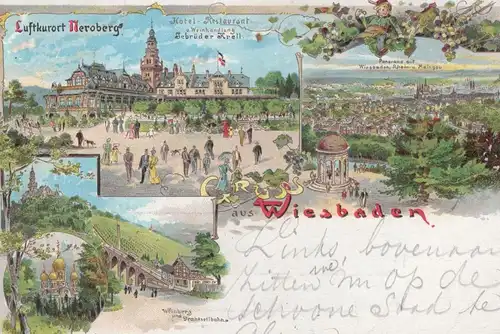 Luftkurort Neroberg
Hotel-Restaurant
u. Weinhandlung
Gebrüder Kroll
Panorama auf
Wiesbaden, Rhein u. Maingau.
Gruss
aus Wiesbaden.
Weinberg
und Drahtseilbahn.
Links bovenaan
zitten we, nu op de
schoone Stad te